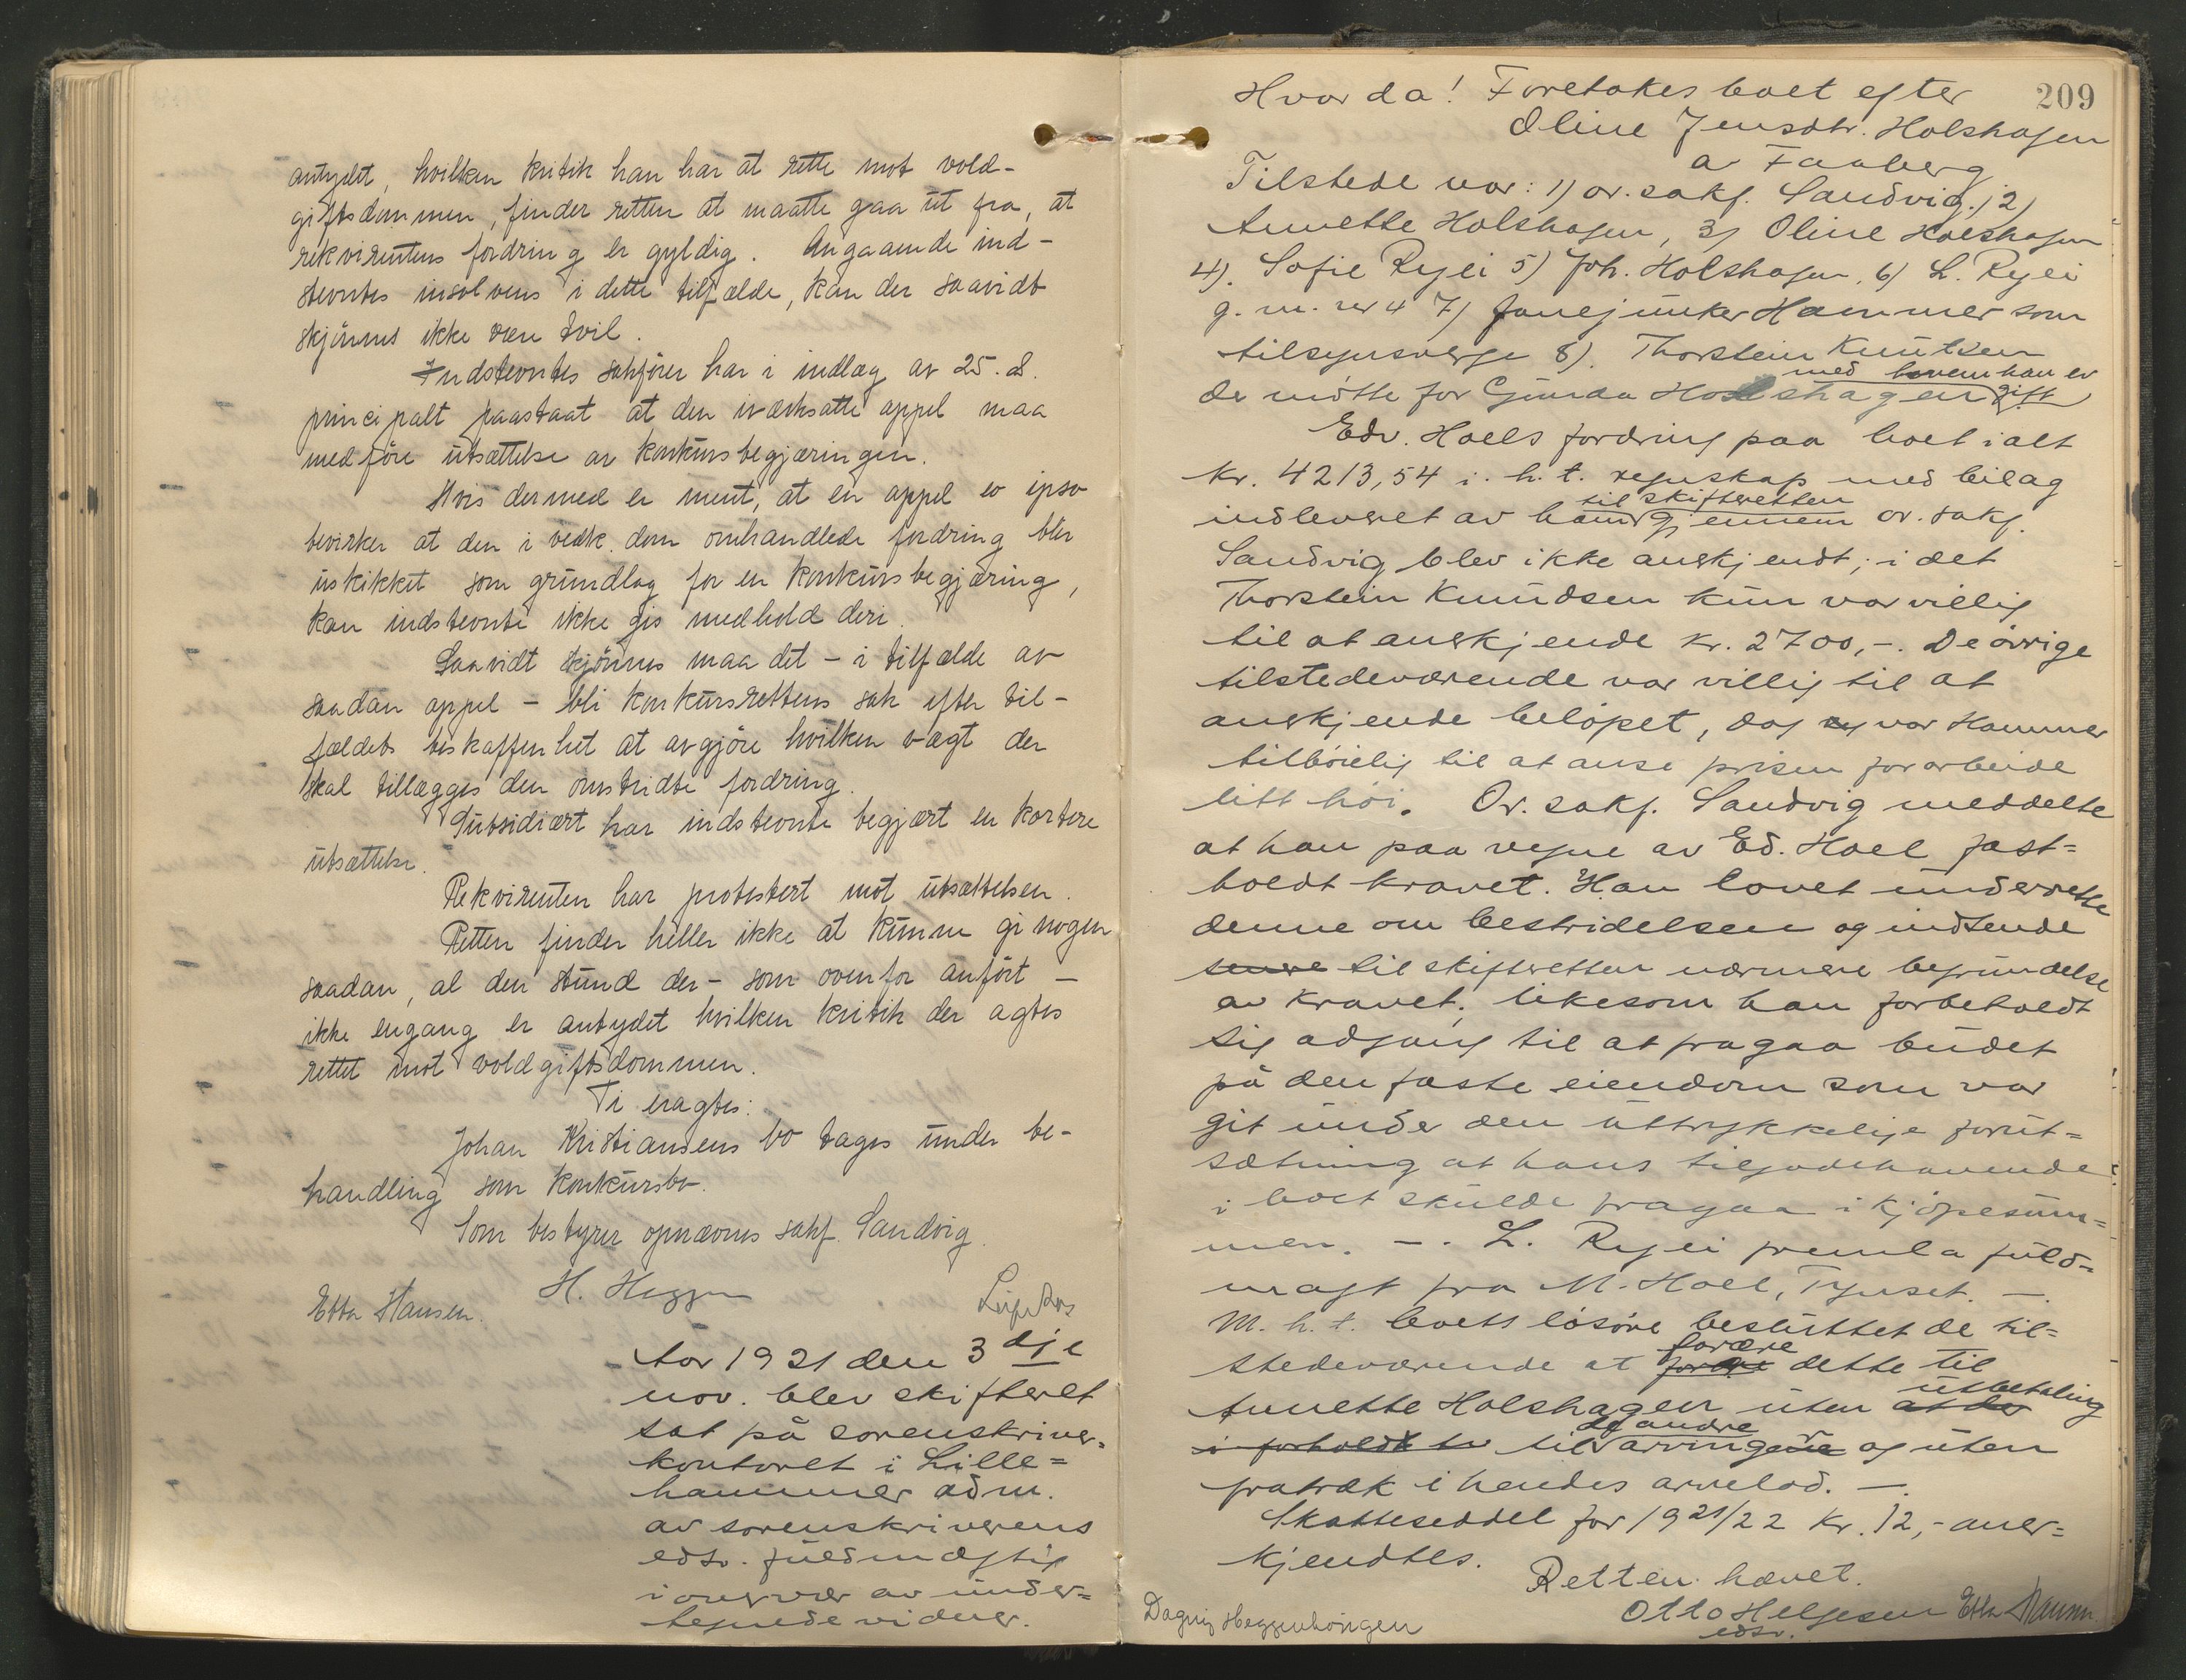 antydet, hvilken kritik han har at rette mot vold-
giftsdommen, finder retten at maatte gaa ut fra, at
rekvirentens fordring er gyldig. Angaaende ind-
stevntes insolvens i dette tilfælde, kan der saavidt
skjönnes ikke være tvil.
Indstevntes sakförer har i indlæg av 25. d.
principalt paastaat at den iverksatte appel maa
medföre utsættelse av konkursbegjæringen.
Hvis dermed er ment, at en appel eo ipso
bevirker at den i vedk. dom omhandlede fordring blir
uskikket som grundlag for en konkursbegjæring,
kan indstevnte ikke gis medhold deri.
Saavidt skjönnes maa det - i tilfælde av
saadan appel - bli konkursrettens sak efter til-
fældets beskaffenhet at avgjöre hvilken vegt der
skal tillægges den omstridte fordring.
Subsidiært har indstevnte begjært en kortere
utsættelse.
Rekvirenten har protestert mot utsættelsen.
Retten finder heller ikke at kunne gi nogen
saadan, al den stund der - som ovenfor anfört -
ikke engang er antydet hvilken kritik der agtes
rettet mot voldgiftsdommen.
Ti eragtes:
Johan Kristiansens bo tages under be-
handling som konkursbo.
Som bestyrer opnævnes sakf. Sandvig.
H. Heggen
Ebba Hansen.
Aar 1921 den 3dje
nov. blev skifteret
sat på sorenskriver=
kontoret i Lille=
hammer adm.
av sorenskriverens
edsv. fuldmægtig
i overvær av under=
tegnede vidner.
209
Hvorda! Foretokes boet efter
Oline Jensdtr. Holshagen
av Faaberg
Tilstede var: 1) or. sakf. Sandvig, 2)
Annette Holshagen, 3) Oline Holshagen
4). Sofie Ryei 5) Joh. Holshagen, 6) L. Ryei
g. m. nr 4 7) fanejunker Hammer som
tilsynsverge 8). Thorstein Knutsen
med hvem han er
de mötte for Gunda Holshagen gift
Edv. Hoels fordring paa boet i alt
kr. 4213,54 i. h. t. regnskap med bilag
til skifteretten
indleveret av ham gjennem or. sakf.
Sandvig blev ikke anerkjendt; i det
Thorstein Knudsen kun var villig
til at anerkjende kr. 2700,-. De övrige
tilstedeværende var villig til at
anerkjende belöpet, dog var Hammer
tilböielig til at anse prisen for arbeide
litt höi. Or. sakf. Sandvig meddelte
at han paa vegne av Ed. Hoel fast=
holdt kravet. Han lovet underrette
denne om bestridelsen og indsende
senere til skifteretten nærmere begrundelse
av kravet, likesom han forbeholdt
sig adgang til at fragaa budet
på den faste eiendom som var
git under den uttrykkelige forut=
sætning at hans tilgodehavende
i boet skulde fragaa i kjöpesum=
men. -. L. Ryei fremla fuld=
magt fra M. Hoel, Tynset. -.
M. h. t. boets lösöre besluttet de til=
forære
stedeværende at dette til
utbetaling
Annette Holshagen uten at der
de andre
i forholdt til arvinger og uten
fratrek i hendes arvelod. -.
Skatteseddel for 1921/22 kr. 12,- aner=
kjendtes.
Retten hævet.
Otto Helgesen Ebba Hansen
edsv.
Dagny Heggenhougen